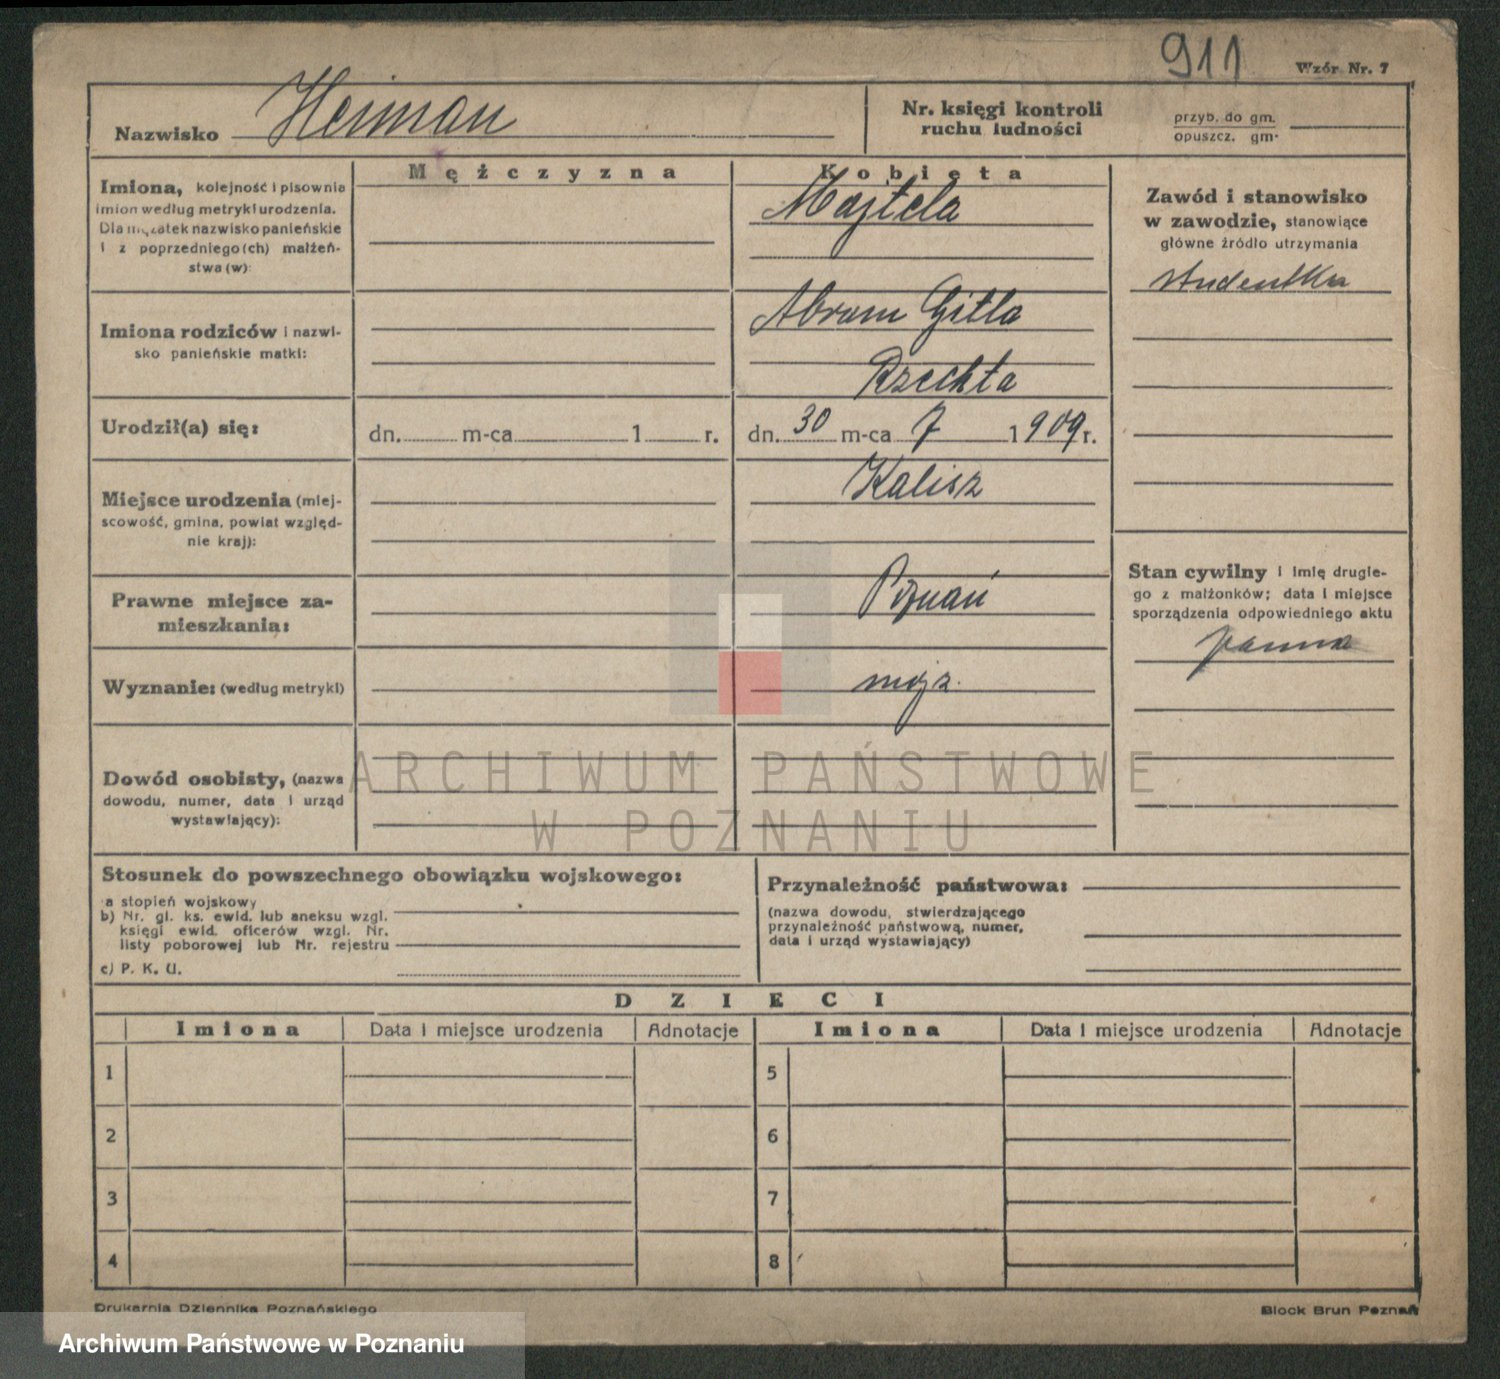 911
Wzór Nr. 7
Nazwisko Heiman
Nr. księgi kontroli
ruchu ludności
przyb. do gm.
opuszcz. gm.
Mężczyzna
Kobieta
Imiona, kolejność i pisownia
imion według metryki urodzenia.
Dla mężatek nazwisko panieńskie
i z poprzedniego(ch) małżeń-
stwa(w):
Majtela
Zawód i stanowisko
w zawodzie, stanowiące
główne źródło utrzymania
studentka
Imiona rodziców i nazwi-
sko panieńskie matki:
Abram Gitla
Rzechta
Urodził(a) się:
dn. m-ca 1 r.
dn. 30 m-ca 7 1909 r.
Miejsce urodzenia (miej-
scowość, gmina, powiat względ-
nie kraj):
Kalisz
Stan cywilny i imię drugie-
go z małżonków; data i miejsce
sporządzenia odpowiedniego aktu
panna
Prawne miejsce za-
mieszkania:
Poznań
Wyznanie: (według metryki)
mojż.
Dowód osobisty, (nazwa
dowodu, numer, data i urząd
wystawiający):
ARCHIWUM PAŃSTWOWE
W POZNANIU
Stosunek do powszechnego obowiązku wojskowego:
a stopień wojskowy
b) Nr. gl. ks. ewid. lub aneksu wzgl.
księgi ewid. oficerów wzgl. Nr.
listy poborowej lub Nr. rejestru
c) P. K. U.
Przynależność państwowa:
(nazwa dowodu, stwierdzającego
przynależność państwową, numer,
data i urząd wystawiający)
DZIECI
Imiona Data i miejsce urodzenia Adnotacje Imiona Data i miejsce urodzenia Adnotacje
1 5
2 6
3 7
4 8
Drukarnia Dziennika Poznańskiego
Block Brun Poznań
Archiwum Państwowe w Poznaniu